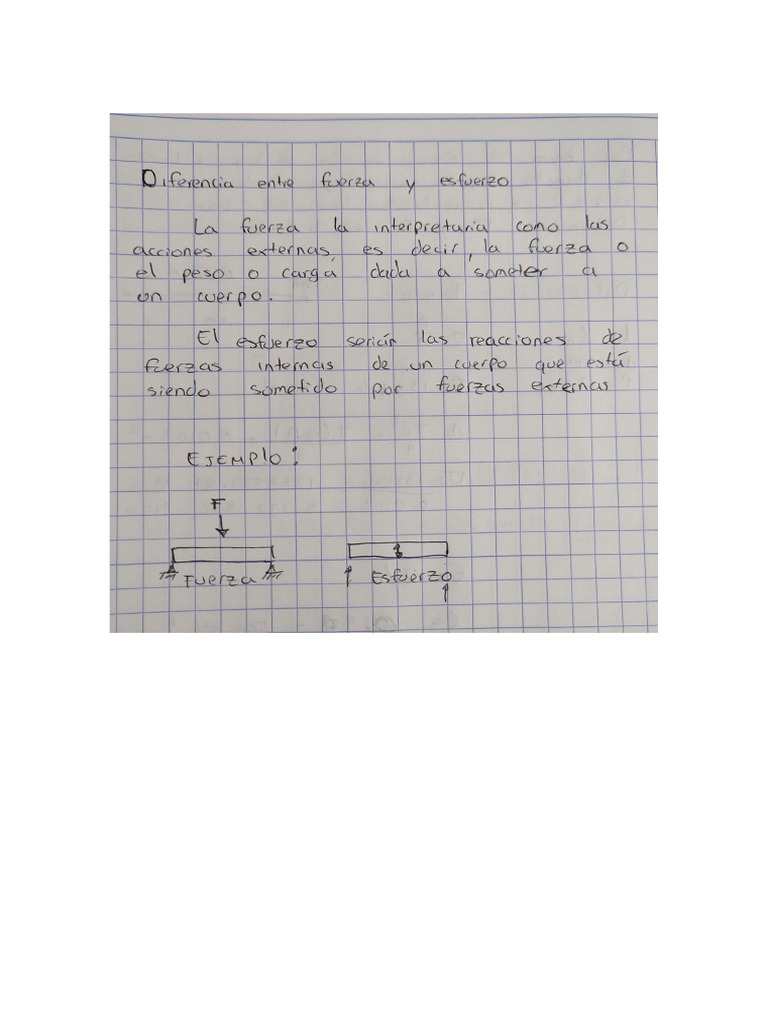 Diferencia entre fuerza y esfuerzo
La fuerza la interpretaria como las
acciones externas, es decir, la fuerza o
el peso o carga dada a someter a
un cuerpo.
El esfuerzo serían las reacciones de
fuerzas internas de un cuerpo que está
siendo sometido por fuerzas externas
EJEMPLO:
F
Fuerza
Esfuerzo